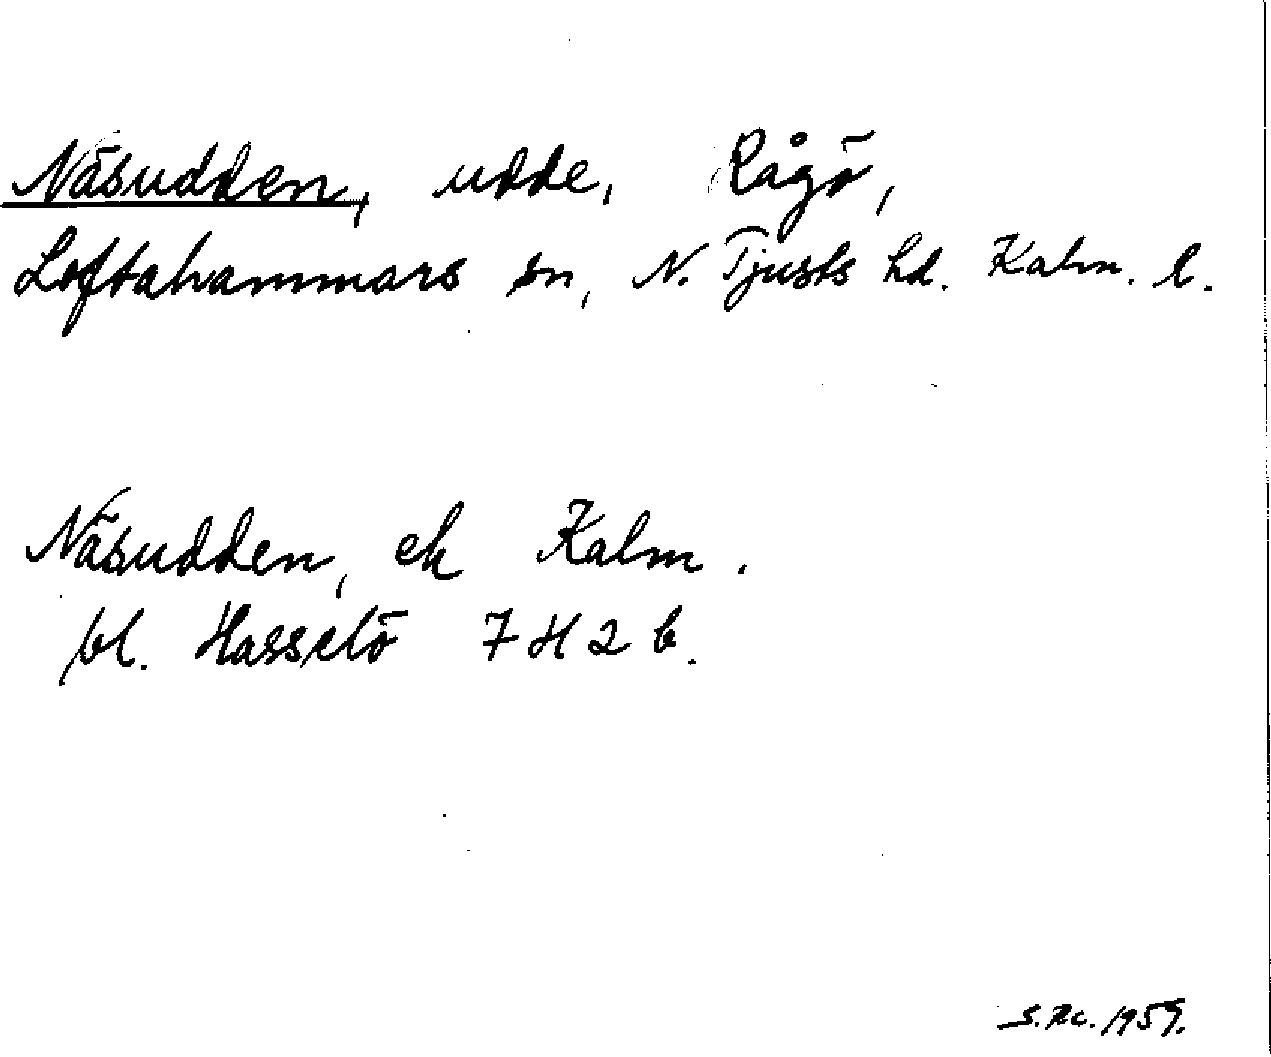 Näsudden, udde, Rågö,
Loftahammars sn, N. Tjusts hd. Kalm. l.
Näsudden, ek Kalm.
bl. Hasselö 7 H 2 b.
S. Rc. 1959.